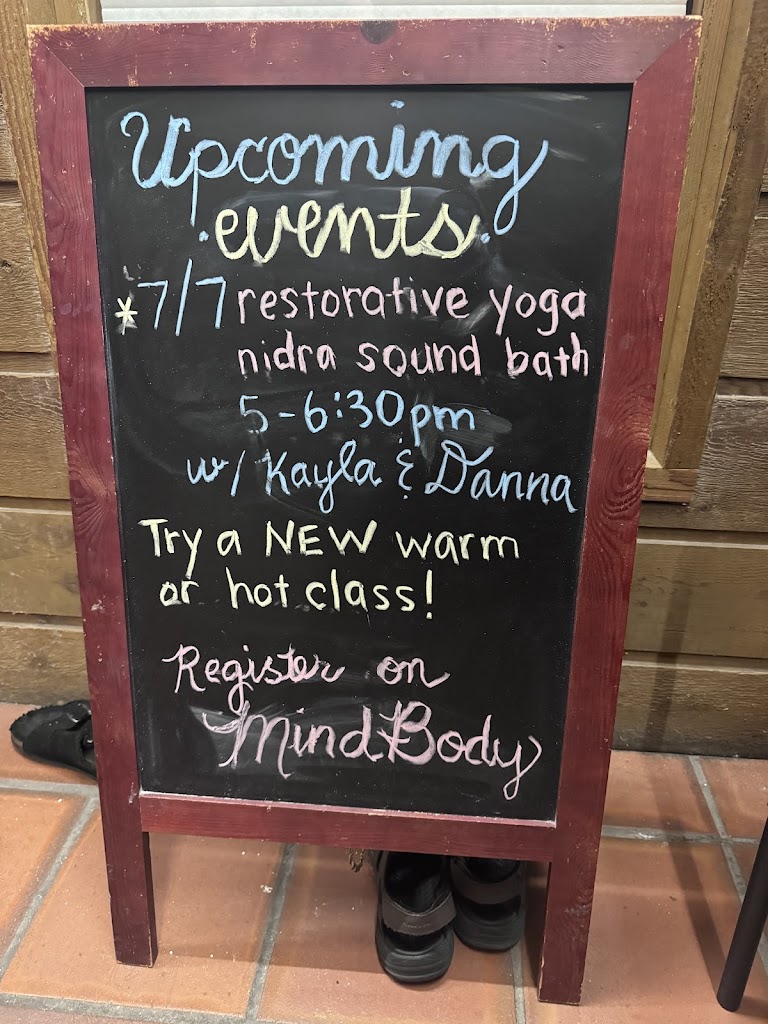 Upcoming
events
*7/7 restorative yoga
nidra sound bath
5-6:30pm
w/ Kayla & Danna
Try a NEW warm
or hot class!
Register on
MindBody